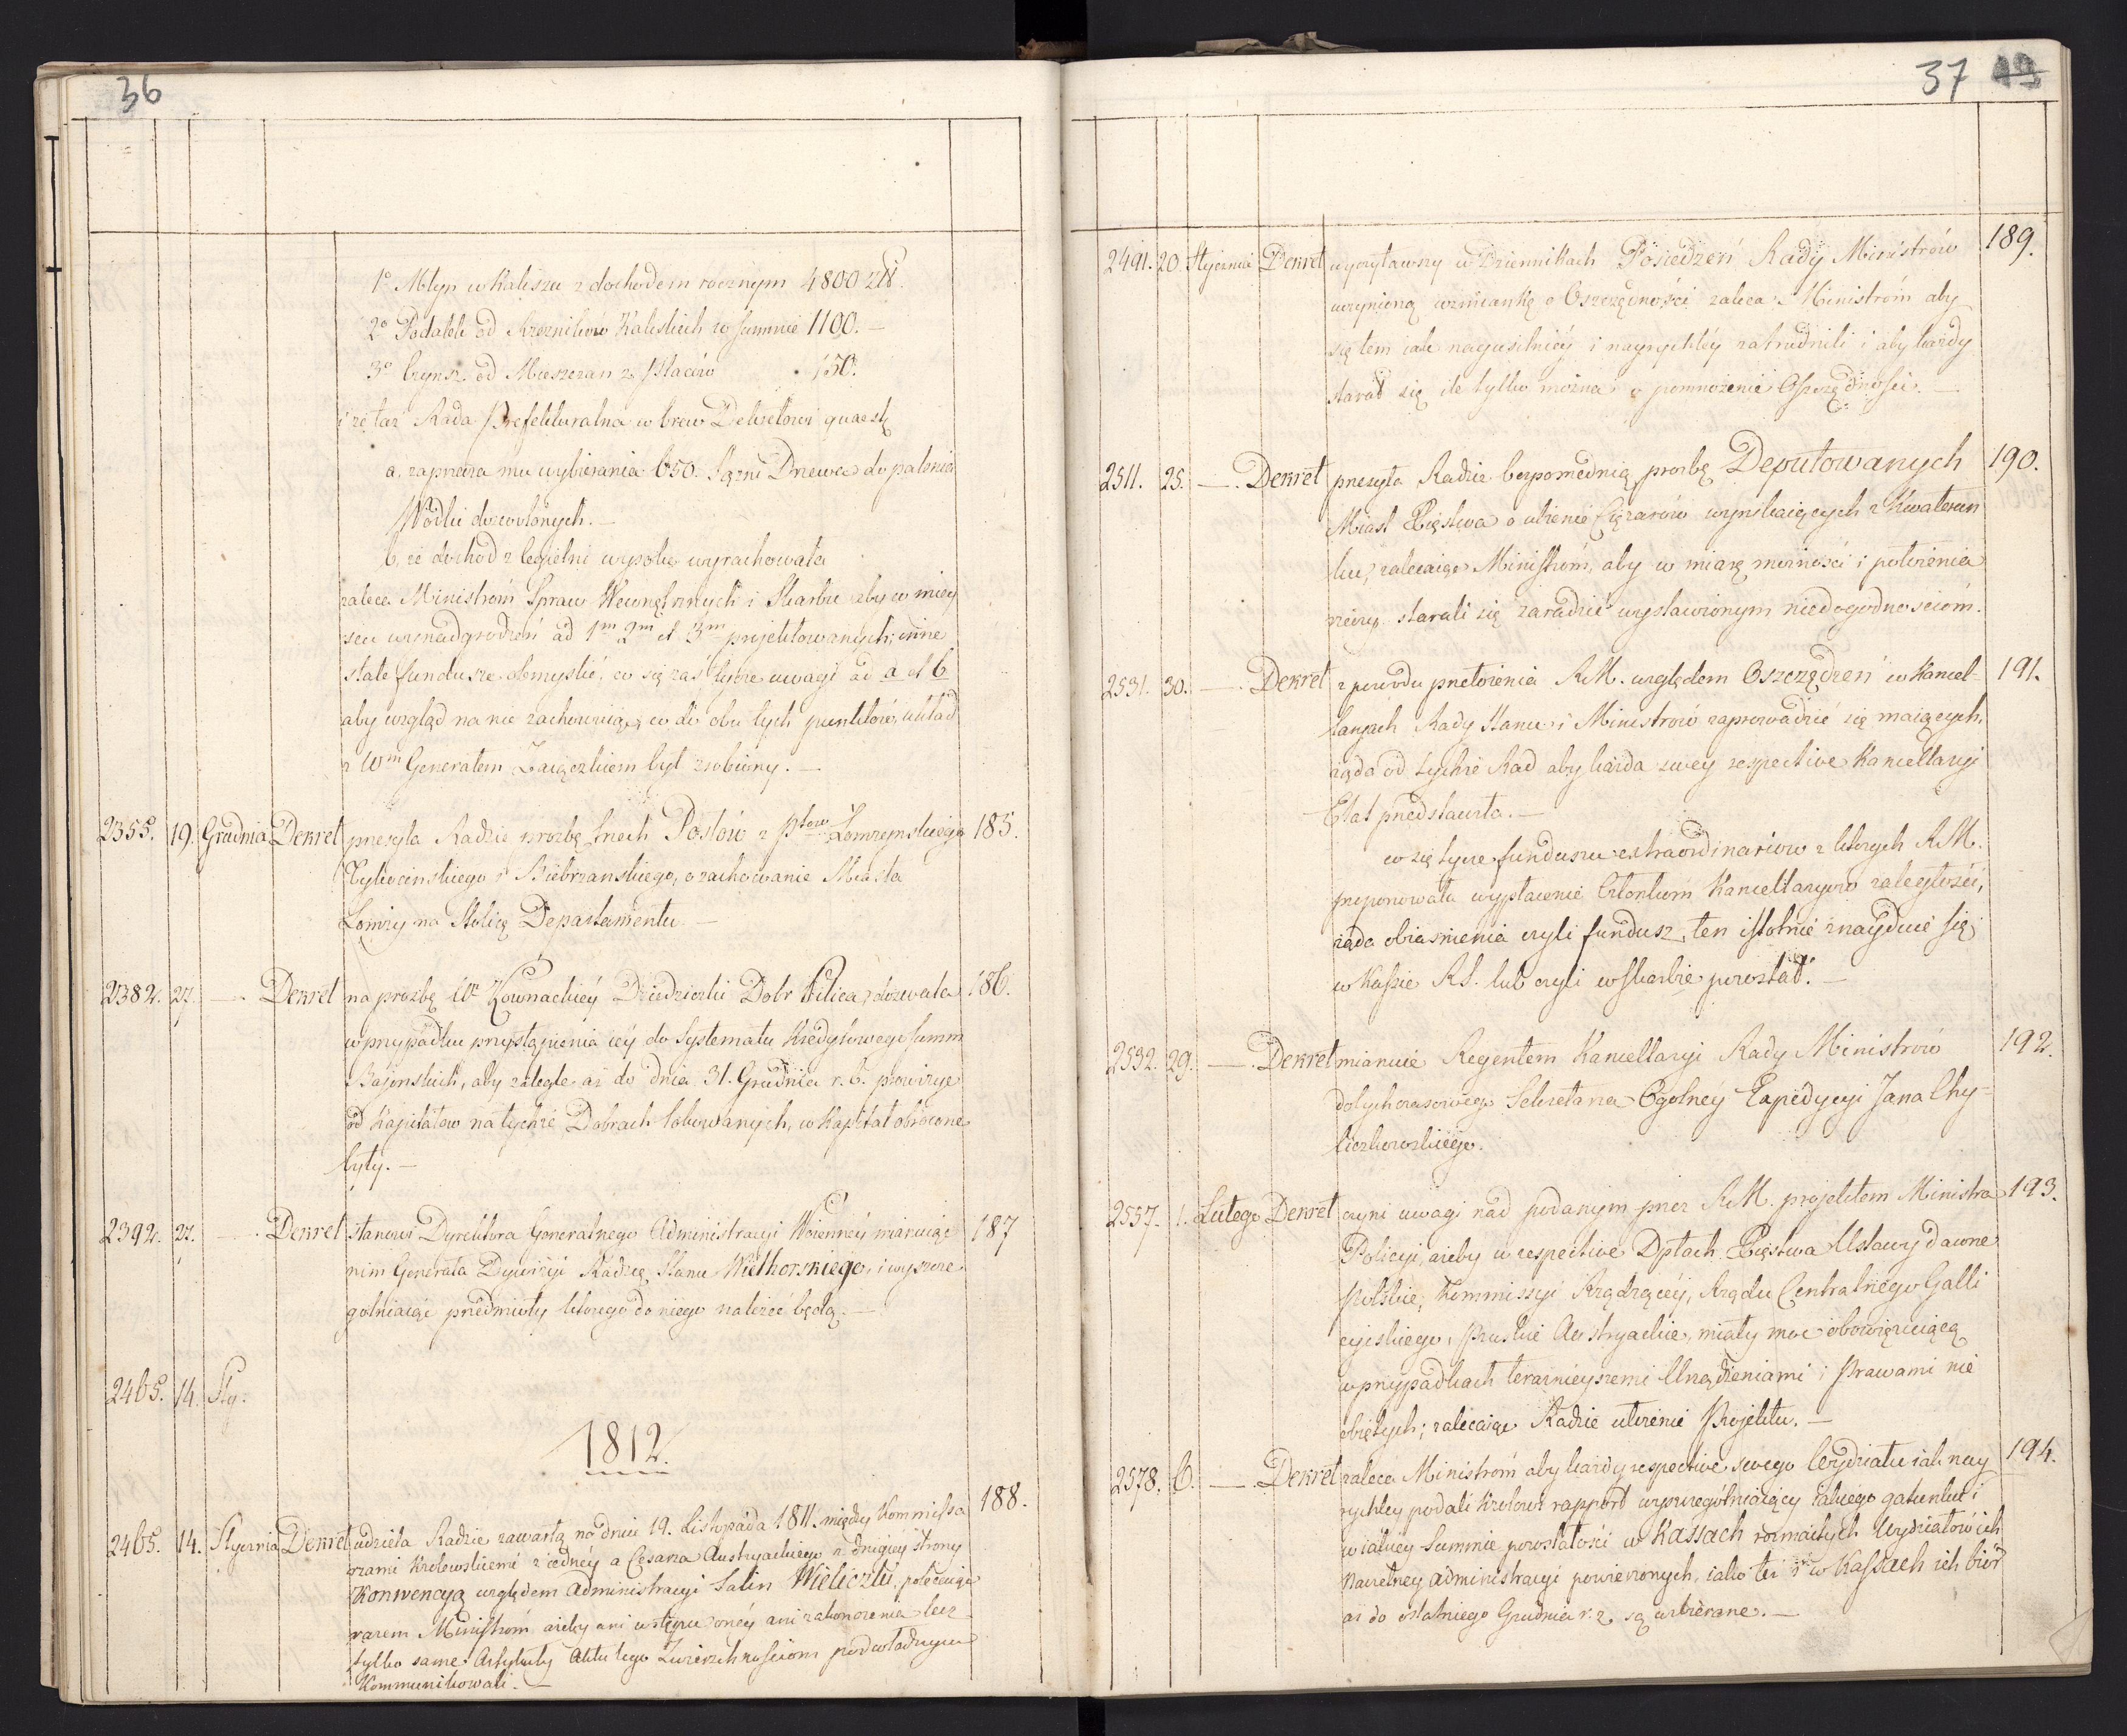 36
1º Młyn w Kaliszu z dochodem rocznym 4800 zł.
2º Podatek od Rzeznikow Kaliskich w summie 1100. —
3º Czynsz od Mieszczan z Placów 150.
i że taż Rada Prefekturalna w brew Dekretowi quaest.
a, zaprzecza mu wybierania 650. Sążni Drzewa do palenia
Wódki dozwolonych. —
b, że dochod z Cegielni wysoko wyrachowała
zaleca Ministróm Spraw Wewnętrznych i Skarbu aby w miey
scu wynadgrodzeń ad 1m 2m et 3m projektowanych, inne
stałe fundusze obmyslić, co się zaś tycze uwagi ad a et b
aby wzgląd na nie zachowując, co do obu tych punktów, układ
z Wm Generałem Zaiączkiem był zrobiony. —
2355. 19. Grudnia Dekret przesyła Radzie prozbę trzech Posłów z Ptow Łomzynskiego 185.
Tykocinskiego i Biebrzanskiego, o zachowanie Miasta
Łomży na Stolicę Departamentu —
2382. 27. — . Dekret na prozbę Wr Kownackiéy Dziedziczki Dobr Pilica, dozwala 186.
w przypadku przystąpienia iéy do Systematu Kredytowego Summ
Bajonskich, aby zaległe aż do dnia 31. Grudnia r. b. prowizye
od Kapitałow na tychże Dobrach lokowanych, w Kapitał obrócone
były. —
2392. 27. — . Dekret stanowi Dyrektora Generalnego Administracyi Woienney mianuiąc 187
nim Generała Dywizyi Radzcę Stanu Wielhorskiego, i wyszcze
golniaiąc przedmioty ktorego do niego należeć będą. —
2465. 14. Sty.
1812.
2465. 14. Stycznia Dekret udziela Radzie zawartą na dniu 19. Listopada 1811. między Kommissa 188.
rzami Krolewskiemi z iednéy a Cesarza Austryackiego z drugiéy strony
Konwencyą względem Administracyi Salin Wieliczki, polecaiąc
razem Ministróm ażeby ani wstępu onéy ani zakonczenia lecz
tylko same Artykuły Aktu tego Zwierzchnosciom podwładnym
Kommunikowali. —
37 19
2491. 20. Stycznia Dekret wyczytawszy w Dziennikach Posiedzeń Rady Ministrów 189.
uczynioną wzmiankę o Oszczędności zaleca Ministróm aby
się tem iak nayusilniéy i nayrychléy zatrudnili i aby każdy
starał się ile tylko można o pomnożenie Oszczędności. —
2511. 25. — . Dekret przesyła Radzie bezpomednią prozbę Deputowanych 190.
Miast Xięstwa o ulżenie Cięzarów wynikaiących z Kwaterun
ku, zalecaiąc Ministróm, aby w miarę możności i położenia
rzeczy starali się zaradzić wystawionym niedogodnościóm.
2531. 30. — . Dekret z powodu przełożenia RM. względem Oszczędzeń w Kancel- 191.
laryach Rady Stanu i Ministrów zaprowadzić się maiących,
żąda od tychże Rad aby każda swey respective Kancellaryi
Etat przedstawiła. —
co się tycze funduszu extraordinariow z ktorych RM.
proponowała wypłacenie Członkóm Kancellaryow zaległości,
żąda obiasnienia czyli fundusz ten istotnie znayduie się
w Kassie RS. lub czyli w Skarbie pozostał. —
2532. 29. — . Dekret mianuie Regentem Kancellaryi Rady Ministrów 192.
dotychczasowego Sekretarza Ogolnéy Expedycyi Jana Chy-
liczkowskiego.
2557. 1. Lutego Dekret czyni uwagi nad podanym przez RM. projektem Ministra 193.
Policyi, ażeby w respective Dptach Xięstwa Ustawy dawne
Polskie, Kommissyi Rządzącéy, Rządu Centralnego Galli
cyiskiego, Pruskie Austryackie, miały moc obowięzuiącą
w przypadkach teraznieyszemi Urządzeniami i Prawami nie
obiętych; zalecaiąc Radzie ułożenie Projektu. —
2578. 6. — . Dekret zaleca Ministróm aby każdy respective swego Wydziału iak nay 194.
rychley podali Krolowi rapport wyszczególniaiący iakiego gatunku i
w iakiey Summie pozostałości w Kassach rozmaitych Wydziałów ich
Naczelney Administracyi powierzonych, iako też i w Kassach ich biór
aż do ostatniego Grudnia r. z. są uzbierane. —